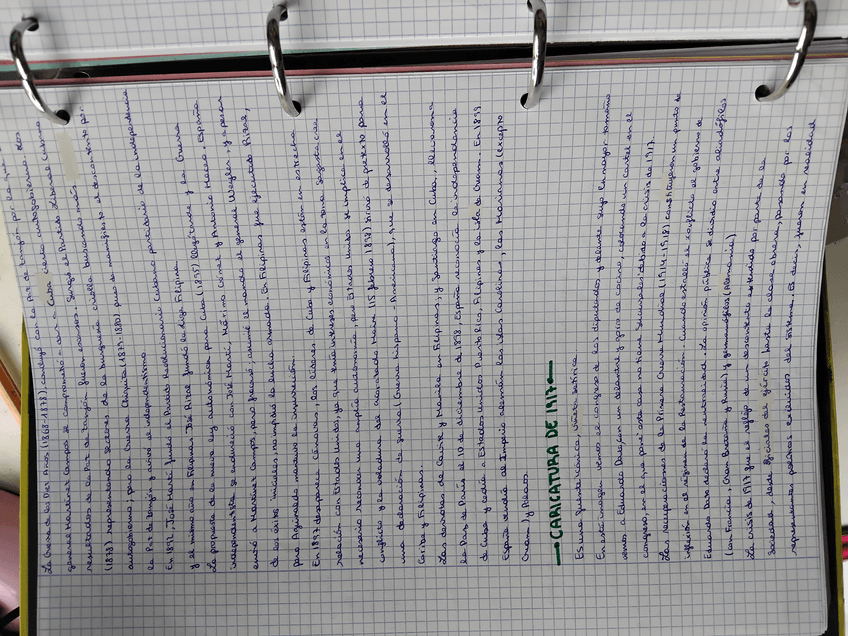 La Guerra de los Diez Años (1868-1878), concluyó con la Paz de Zanjón por la que
general Martínez Campos se comprometió a dar a Cuba cierto autogobierno. Los
resultados de la Paz de Zanjón fueron escasos. Surge el Partido Liberal Cubano
(1878) representando sectores de la burguesía criolla buscando más
autogobierno, pero la Guerra Chiquita (1879-1880) puso de manifiesto el descontento por
la Paz de Zanjón y avivó el independentismo.
En 1892, José Martí fundó el Partido Revolucionario Cubano partidario de la independencia
y el mismo año en Filipinas José Rizal fundó la Liga Filipina.
La propuesta de la nueva ley autonómica para Cuba (1895) llegó tarde y la Guerra
independentista se endureció con José Martí, Máximo Gómez y Antonio Maceo. España
envió a Martínez Campos, pero fracasó, asumió el mando el general Weyler, y a pesar
de los éxitos iniciales, no impidió la lucha armada. En Filipinas fue ejecutado Rizal,
pero Aguinaldo mantuvo la insurrección.
En 1897 desaparece Cánovas, los líderes de Cuba y Filipinas están en estrecha
relación con Estados Unidos, ya que tenía intereses económicos en la zona. Sagasta cree
necesario reconocer una amplia autonomía, pero Estados Unidos se implica en el
conflicto y la voladura del acorazado Maine (15 febrero 1898) sirvió de pretexto para
una declaración de guerra (Guerra Hispano-Americana), que se desarrolló en el
Caribe y Filipinas.
Las derrotas de Cavite y Manila en Filipinas, y Santiago en Cuba, llevaron a
la Paz de París el 10 de diciembre de 1898. España reconocía la independencia
de Cuba y cedía a Estados Unidos Puerto Rico, Filipinas y la isla de Guam. En 1899
España vendía al Imperio alemán las islas Carolinas, las Marianas (excepto
Guam) y Palaos.
CARICATURA DE 1917
Es una fuente
En esta imagen vemos el congreso de los diputados y delante, bajo la mayor tamaño
vemos a Eduardo Dato, con un delantal y gorro de cocina, colocando un cartel en el
congreso, en el que pone este año no tiene debido a la crisis de 1917.
Las repercusiones de la Primera Guerra Mundial (1914-1918) constituyeron un punto de
inflexión en el régimen de la Restauración. Cuando estalló el conflicto el gobierno de
Eduardo Dato declaró la neutralidad. La opinión pública se dividió entre aliadófilos
(con Francia, Gran Bretaña y Rusia) y germanófilos (Alemania)
La crisis de 1917 fue el reflejo de un descontento extendido por parte de la
sociedad, desde oficiales del ejército hasta la clase obrera, pasando por los
representantes políticos excluidos del sistema. Es decir, fueron en realidad